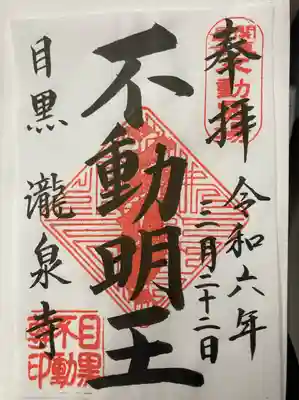 奉拝
令和六年
三月二十二日
不動明王
目黒 瀧泉寺
目黒
不動
尊印